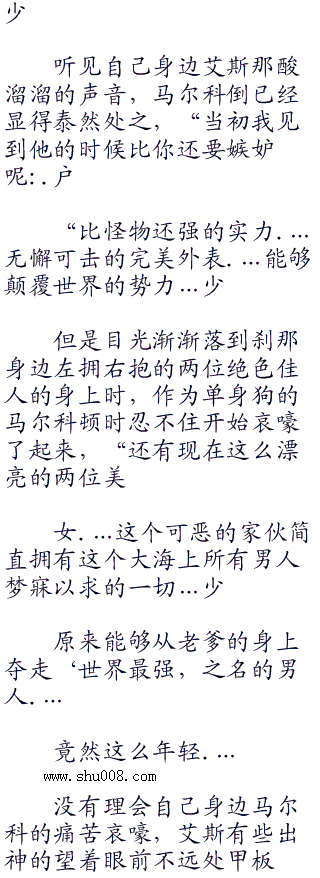 少
听见自己身边艾斯那酸
溜溜的声音，马尔科倒已经
显得泰然处之，“当初我见
到他的时候比你还要嫉妒
呢:.户
“比怪物还强的实力....
无懈可击的完美外表....能够
颠覆世界的势力...少
但是目光渐渐落到刹那
身边左拥右抱的两位绝色佳
人的身上时，作为单身狗的
马尔科顿时忍不住开始哀嚎
了起来，“还有现在这么漂
亮的两位美
女....这个可恶的家伙简
直拥有这个大海上所有男人
梦寐以求的一切...少
原来能够从老爹的身上
夺走‘世界最强，之名的男
人....
竟然这么年轻....
www.shu008.com
没有理会自己身边马尔
科的痛苦哀嚎，艾斯有些出
神的望着眼前不远处甲板